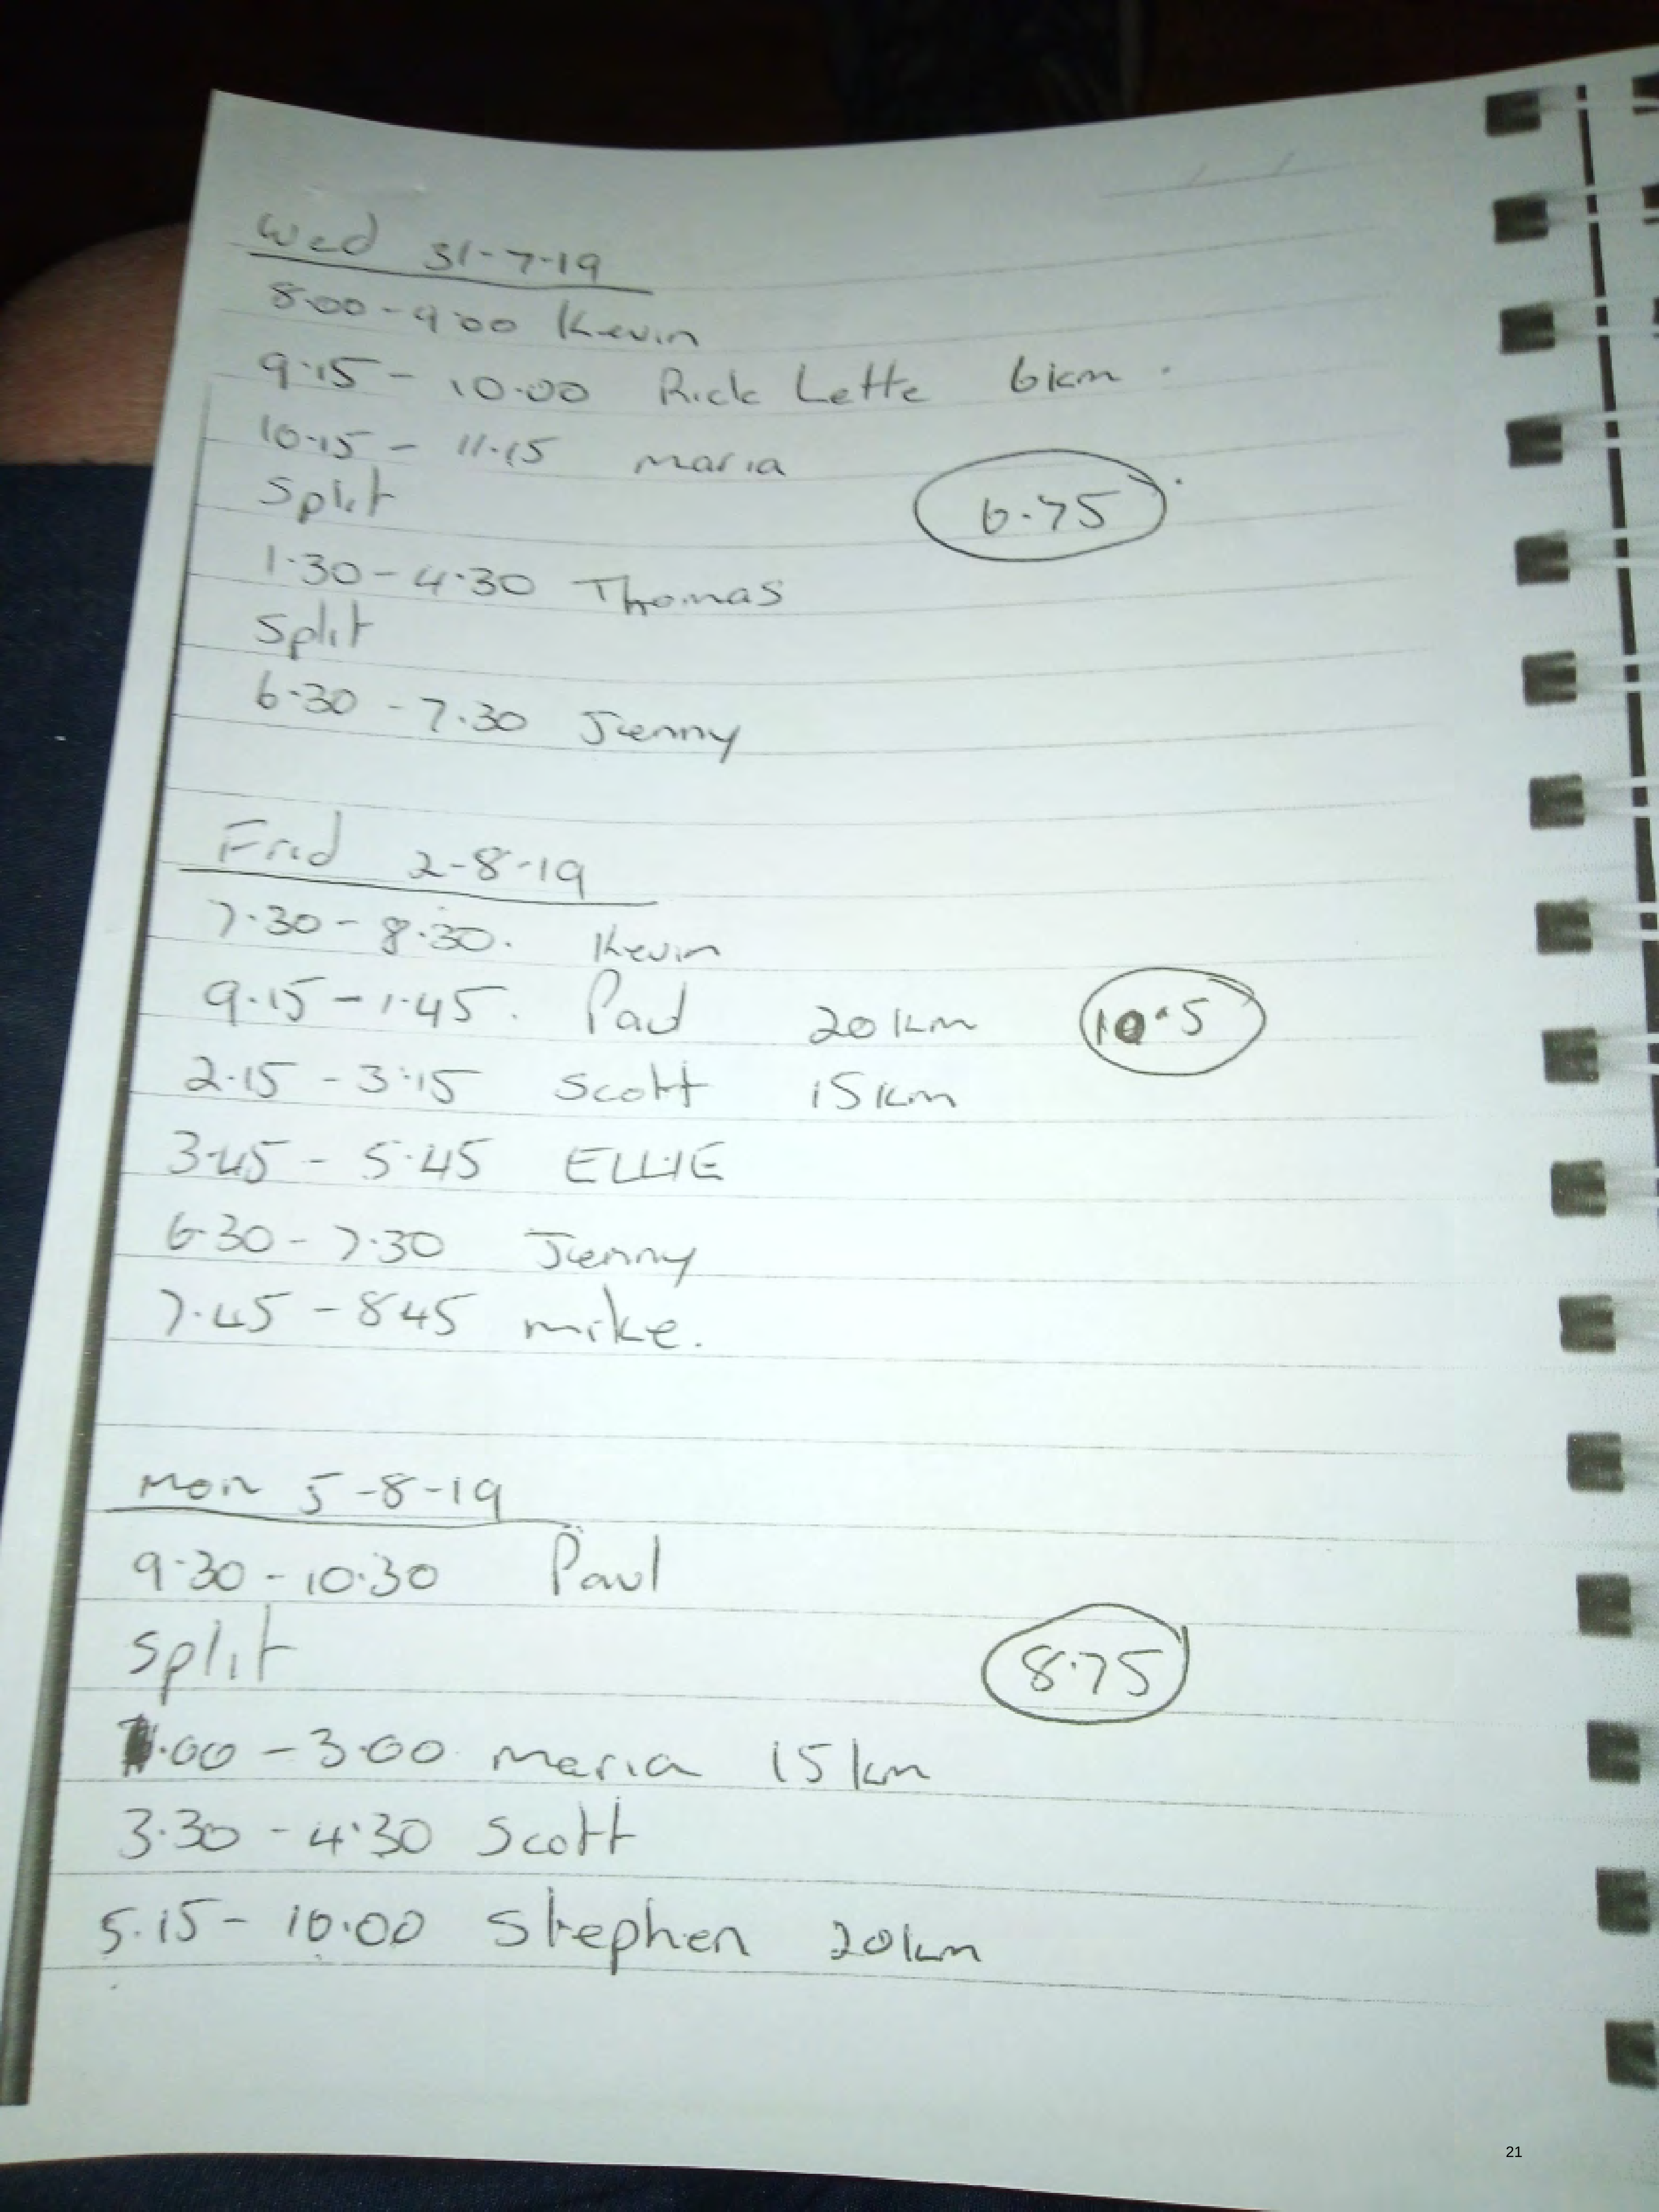 Wed 31-7-19
8.00 - 9.00 Kevin
9.15 - 10.00 Rick Lette 6km.
10.15 - 11.15 Maria
Split
6.75
1.30 - 4.30 Thomas
Split
6.30 - 7.30 Jenny
Frid 2-8-19
7.30 - 8.30. Kevin
9.15 - 1.45. Paul 20km 10.5
2.15 - 3.15 Scott 15km
3.45 - 5.45 ELLIE
6.30 - 7.30 Jenny
7.45 - 845 mike.
Mon 5-8-19
9.30 - 10.30 Paul
Split
8.75
1.00 - 3.00 Maria 15km
3.30 - 4.30 Scott
5.15 - 10.00 Stephen 20km
21